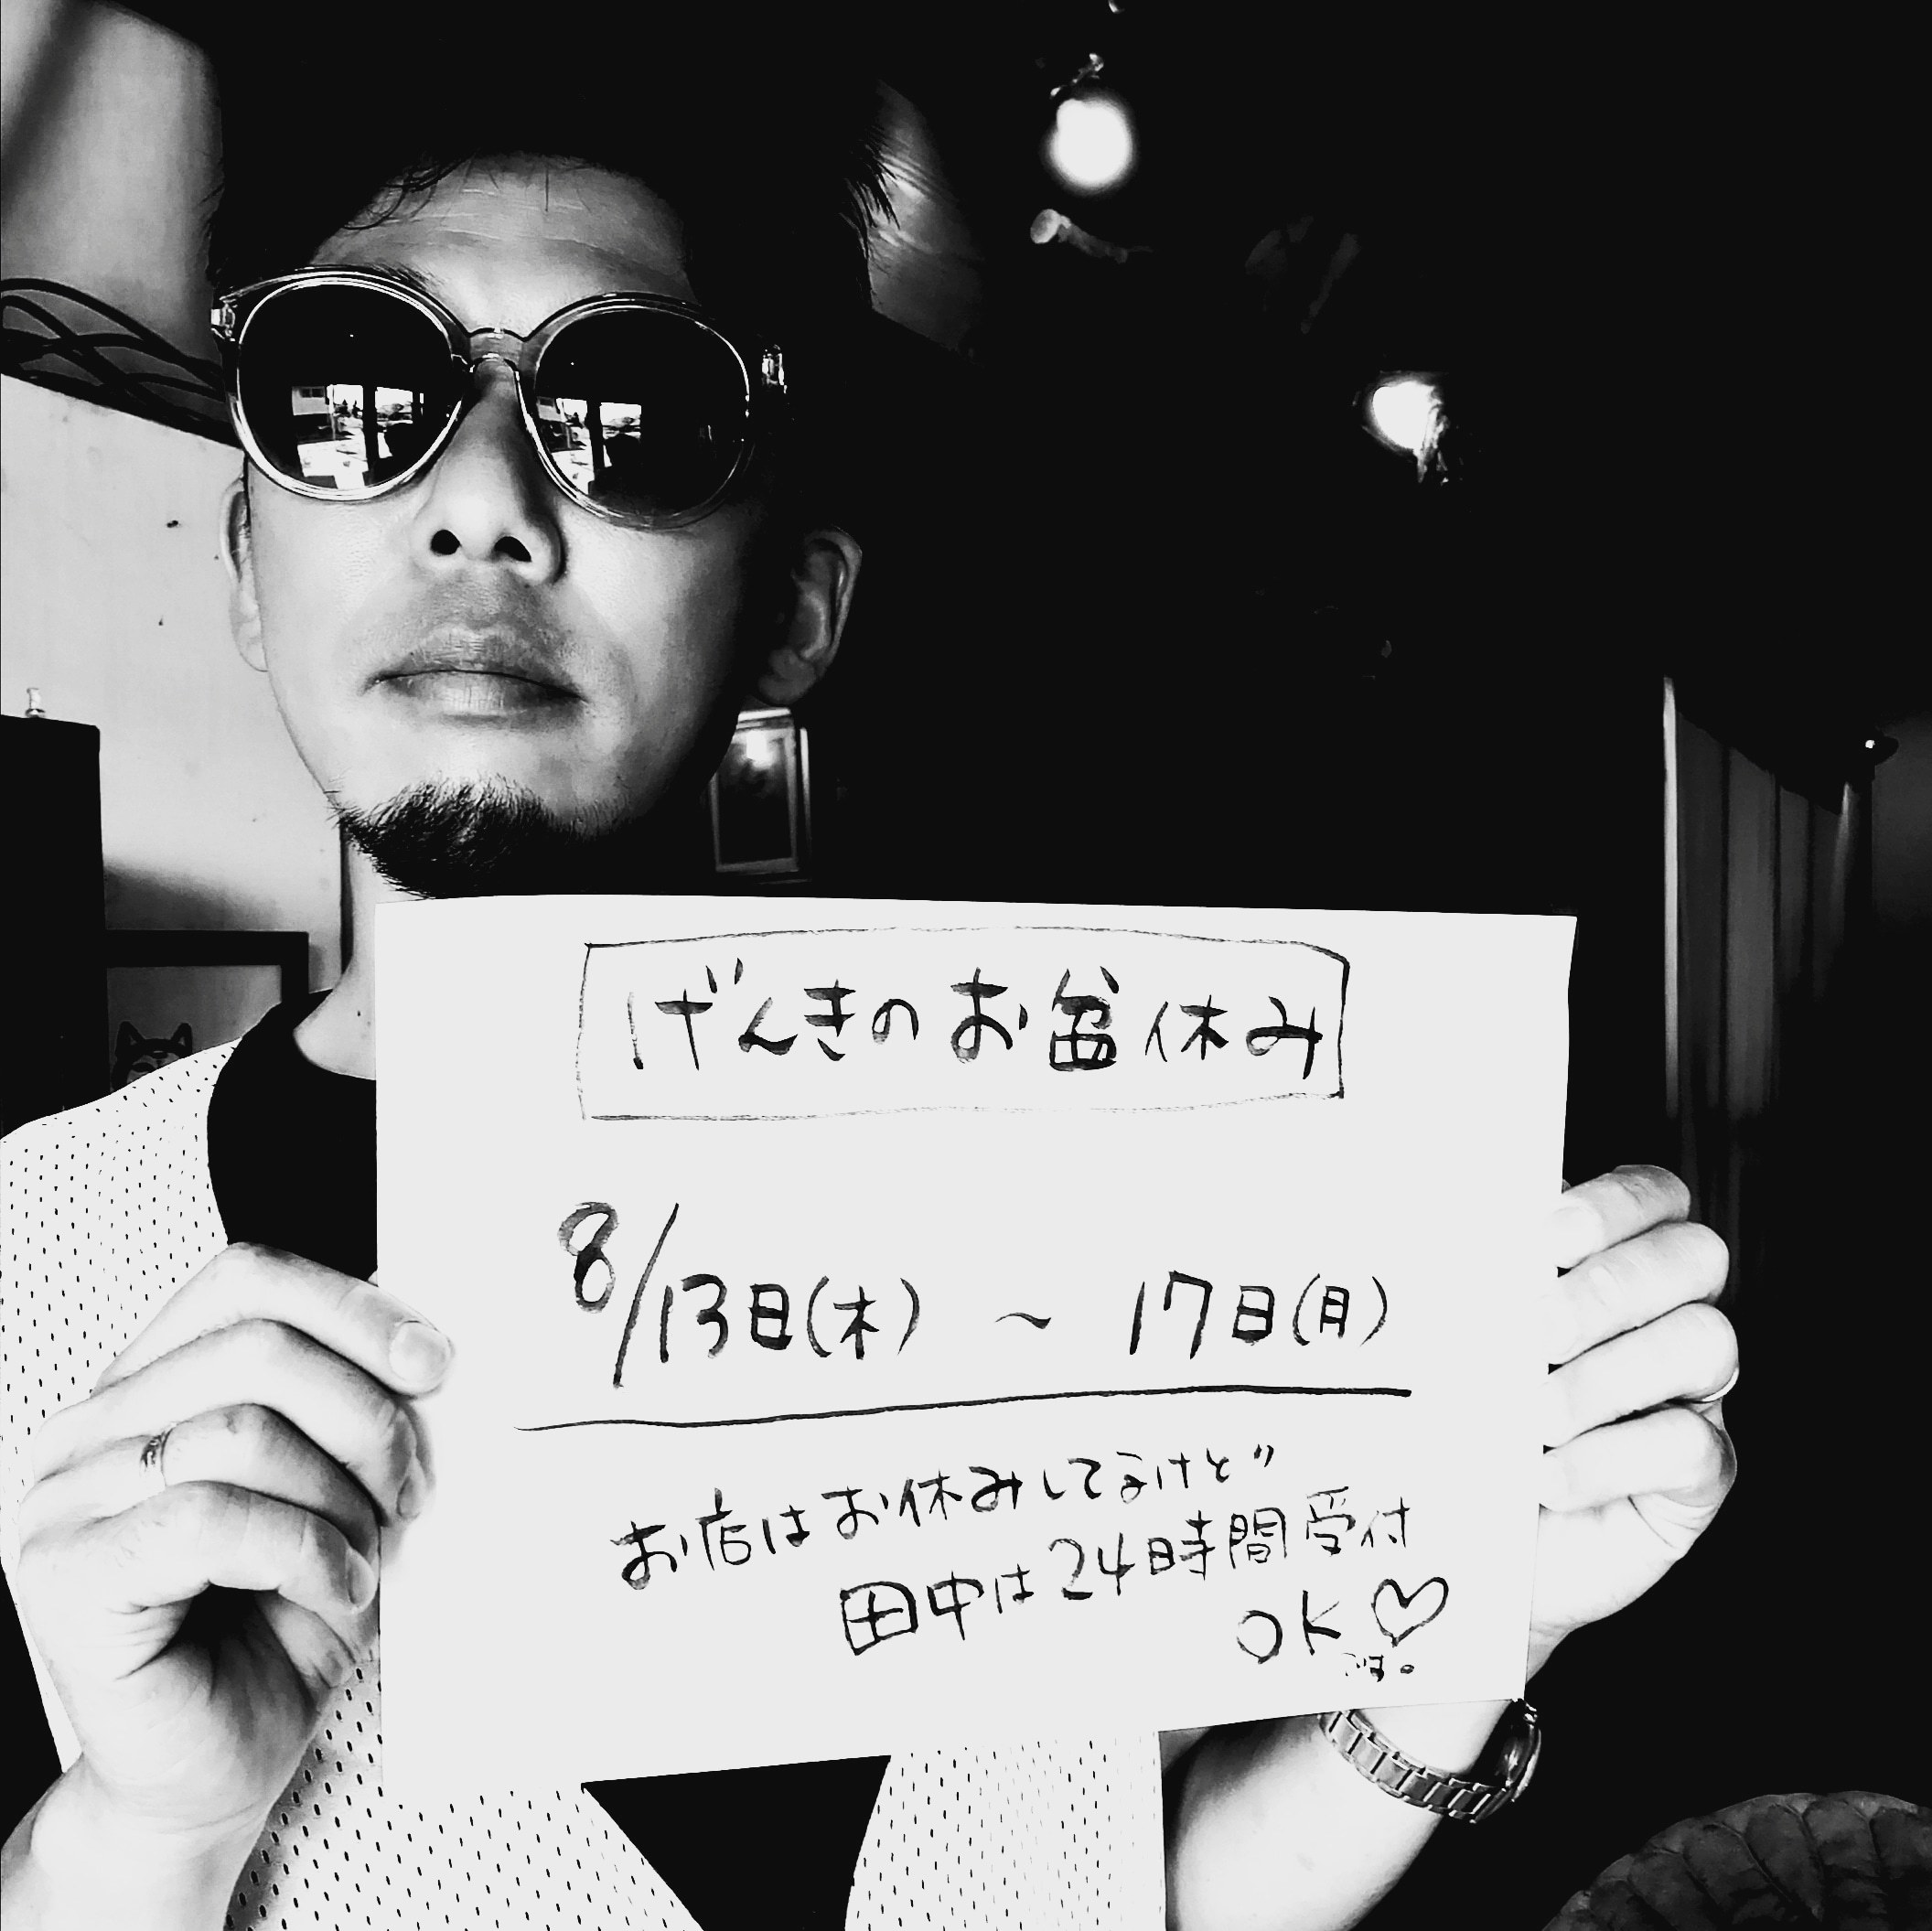 げんきのお盆休み
8/13日(木) ~ 17日(月)
お店はお休みしてるけど
田中は24時間受付
OK♡
です。